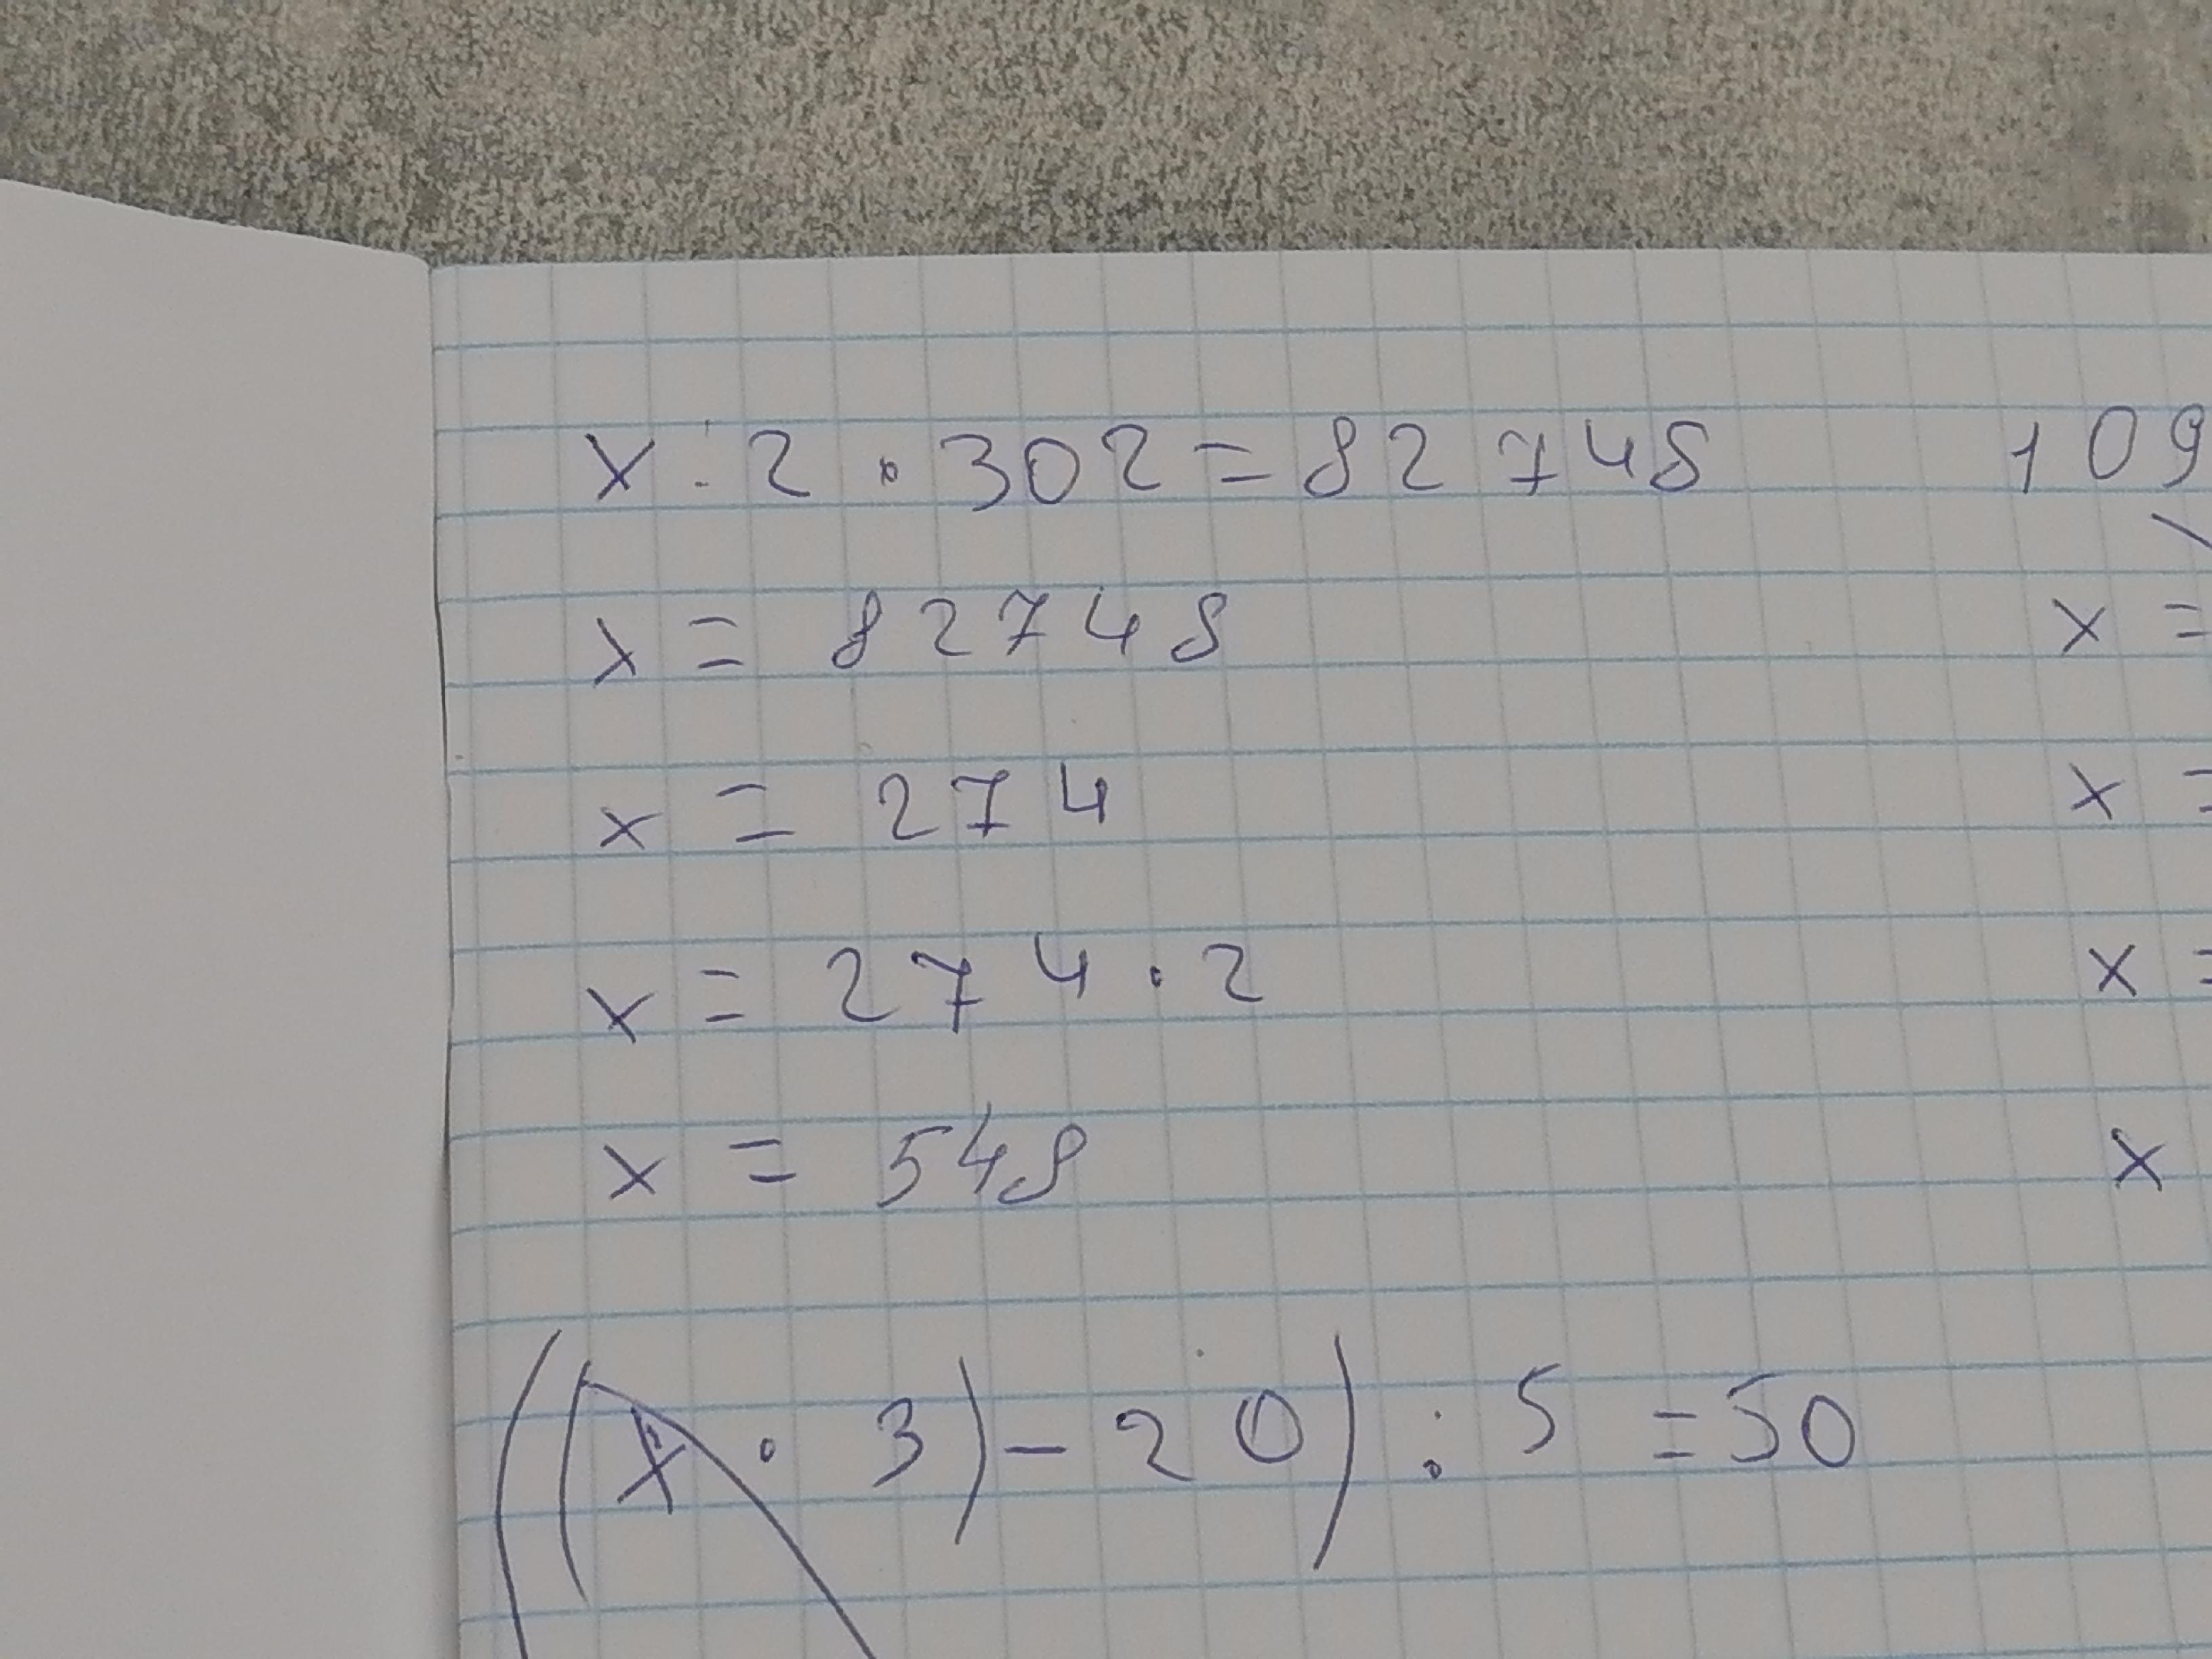 x : 2 · 302 = 82748 109
x = 82748 x =
x = 274 x =
x = 274 · 2 x =
x = 548 x
((x · 3) - 20) : 5 = 50